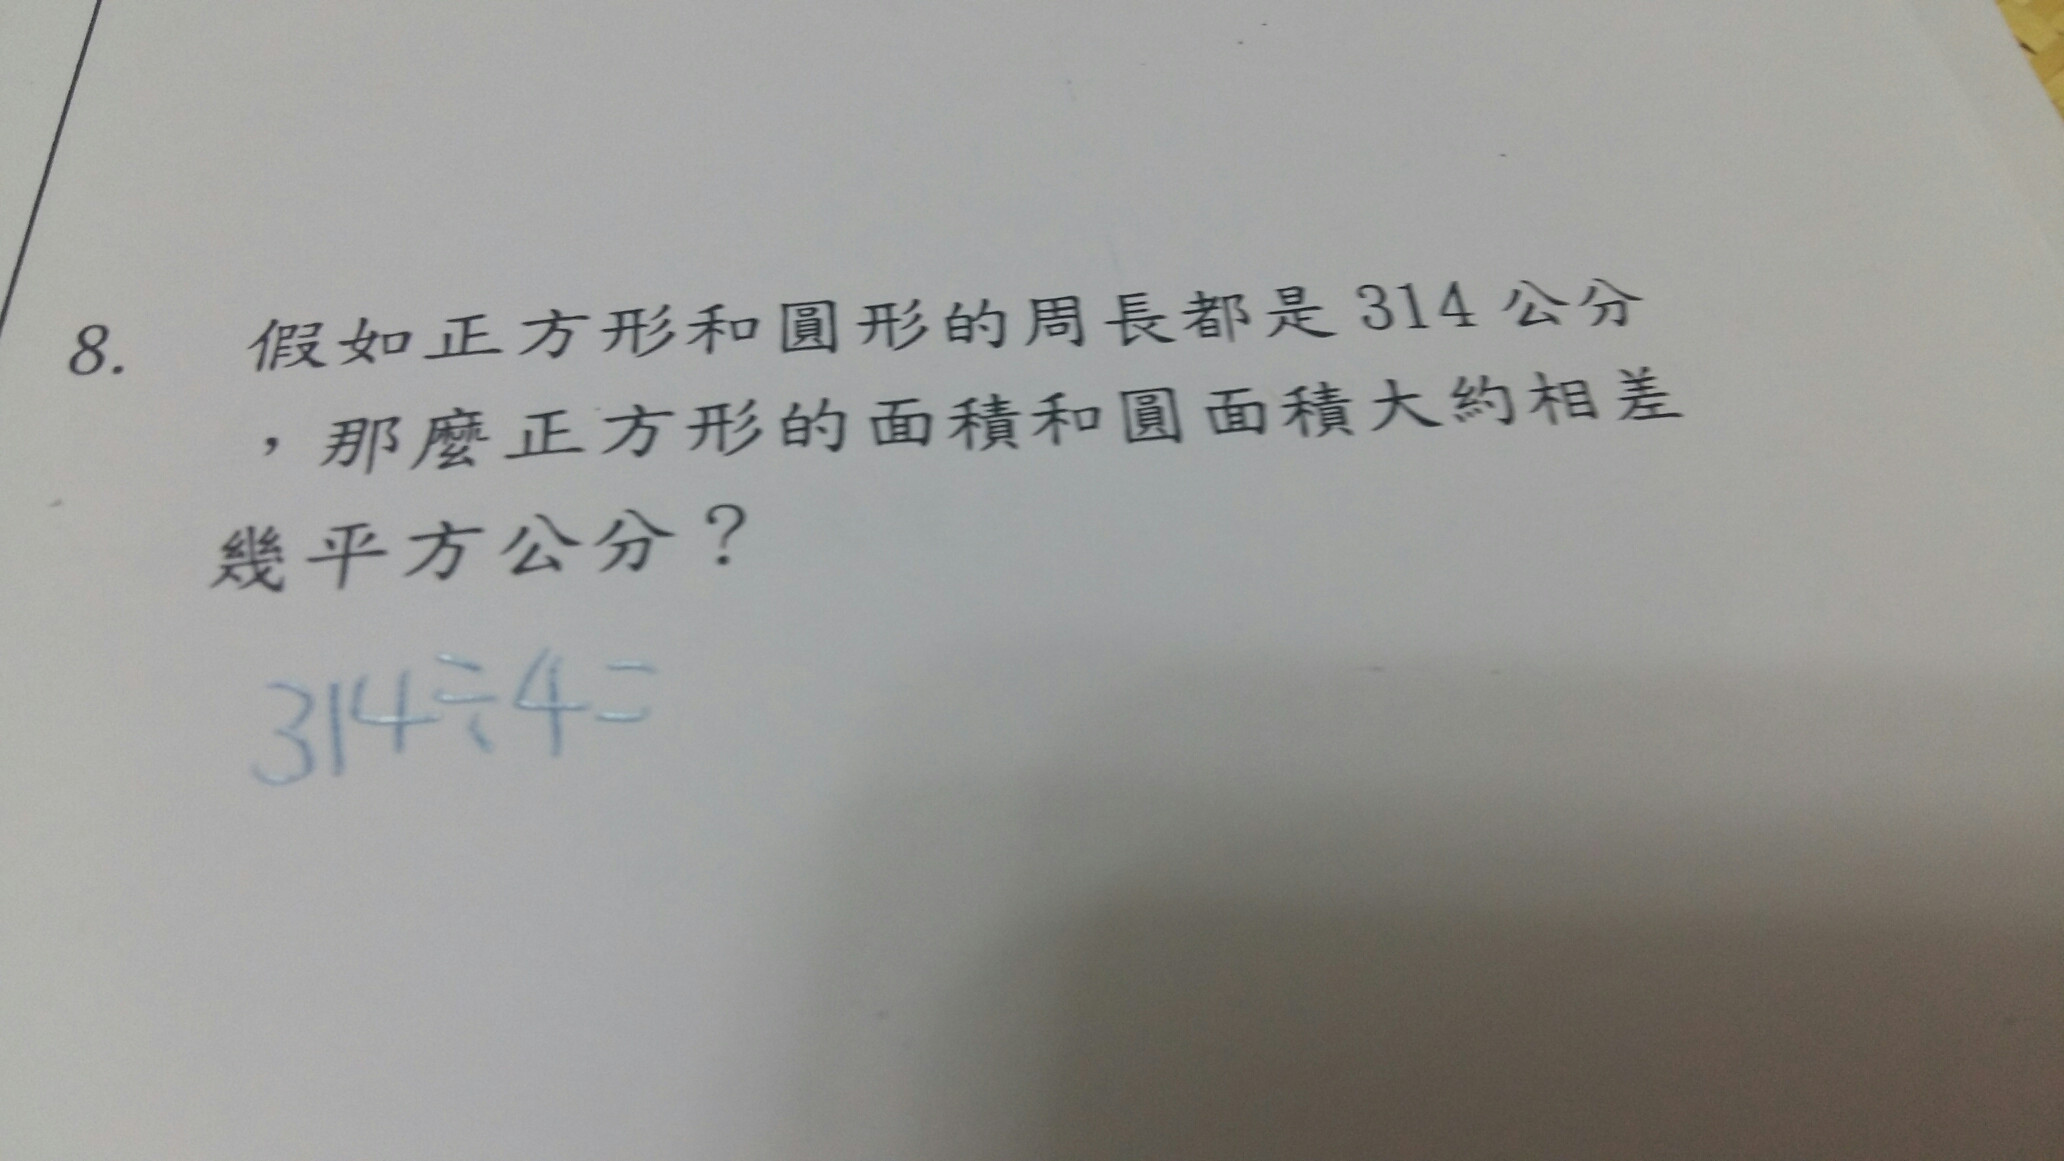 8. 假如正方形和圓形的周長都是314公分
，那麼正方形的面積和圓面積大約相差
幾平方公分？
314÷4=